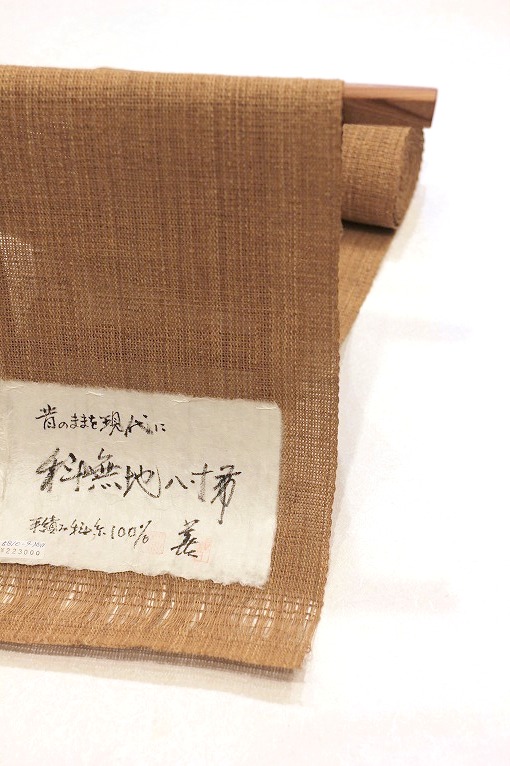 昔のままを現代に
科無地八寸帯
手績み科糸100%
¥223000